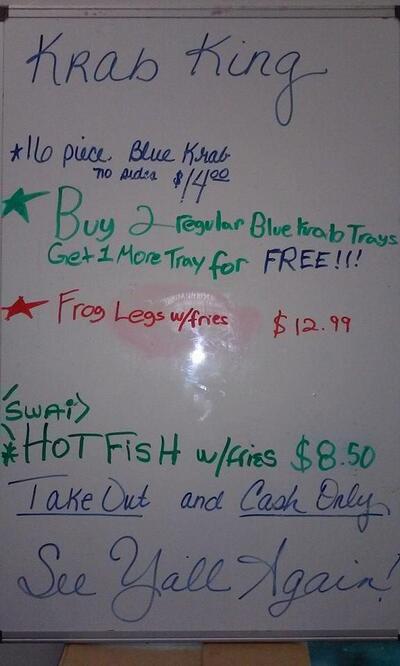 Krab King
*16 piece. Blue Krab
no sides $14.00
★ Buy 2 regular Blue Krab Trays
Get 1 More Tray for FREE!!!
★ Frog Legs w/fries $12.99
SWAI
*HOT FISH w/fries $8.50
Take Out and Cash Only
See Y'all Again!